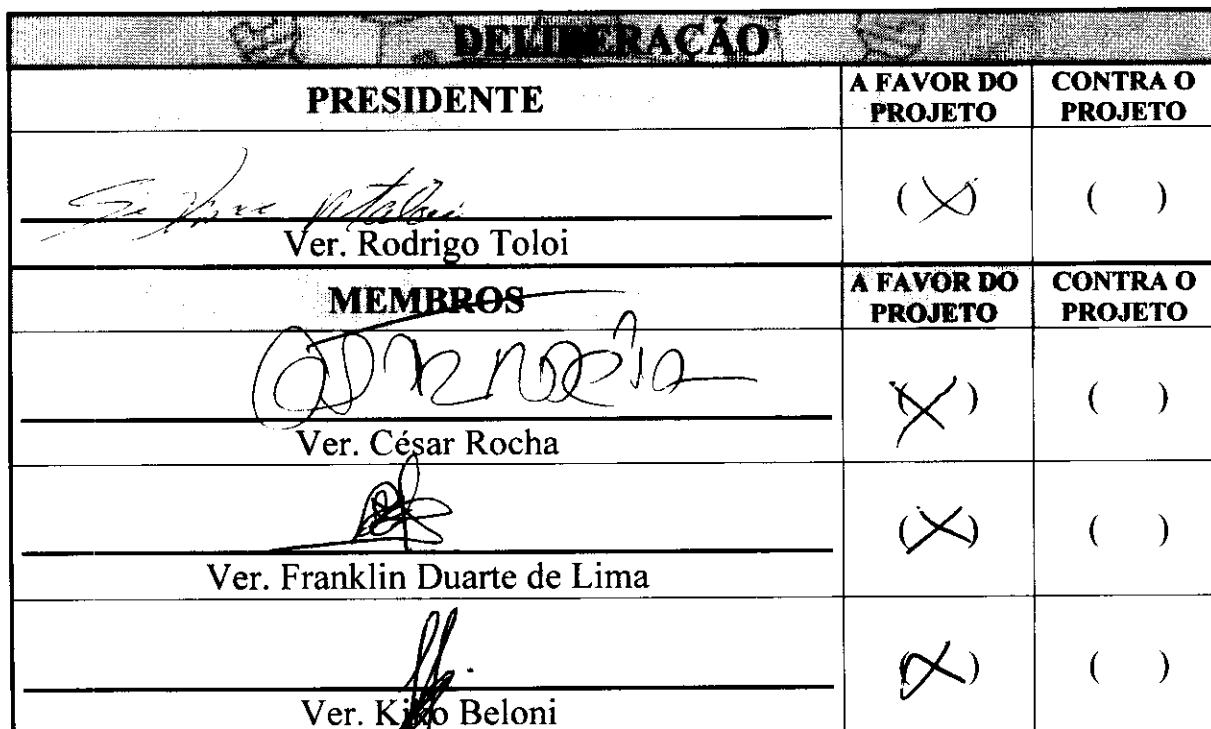 DELIBERAÇÃO
PRESIDENTE
A FAVOR DO PROJETO
CONTRA O PROJETO
(X)
( )
Ver. Rodrigo Toloi
MEMBROS
A FAVOR DO PROJETO
CONTRA O PROJETO
(X)
( )
Ver. César Rocha
(X)
( )
Ver. Franklin Duarte de Lima
(X)
( )
Ver. Kiko Beloni